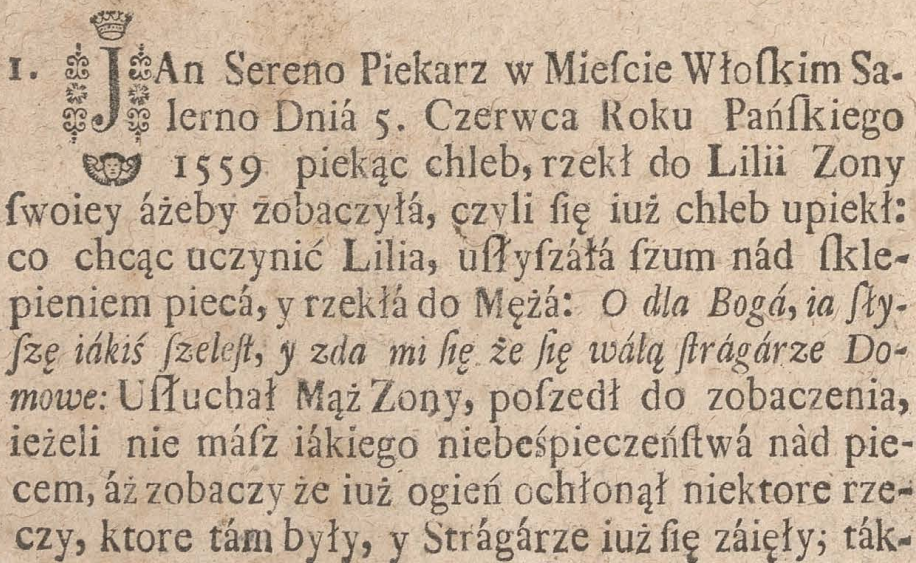 1. JAn Sereno Piekarz w Mieſcie Włoſkim Sa-
lerno Dniá 5. Czerwca Roku Pańſkiego
1559 piekąc chleb, rzekł do Lilii Zony
ſwoiey áżeby zobaczyłá, czyli ſię iuż chleb upiekł:
co chcąc uczynić Lilia, uſłyſzáłá ſzum nád ſkle-
pieniem piecá, y rzekłá do Mężá: O dla Bogá, ia ſły-
ſzę iákiś ſzeleſt, y zda mi ſię że ſię wálą ſtrágárze Do-
mowe: Uſłuchał Mąż Zony, poſzedł do zobaczenia,
ieżeli nie máſz iákiego niebeśpieczeńſtwá nàd pie-
cem, áż zobaczy że iuż ogień ochłonął niektore rze-
czy, ktore tám były, y Strágárze iuż ſię záięły; ták-